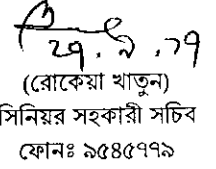 ২৭.৯.১৭
(রোকেয়া খাতুন)
সিনিয়র সহকারী সচিব
ফোনঃ ৯৫৪৫৭৭৯